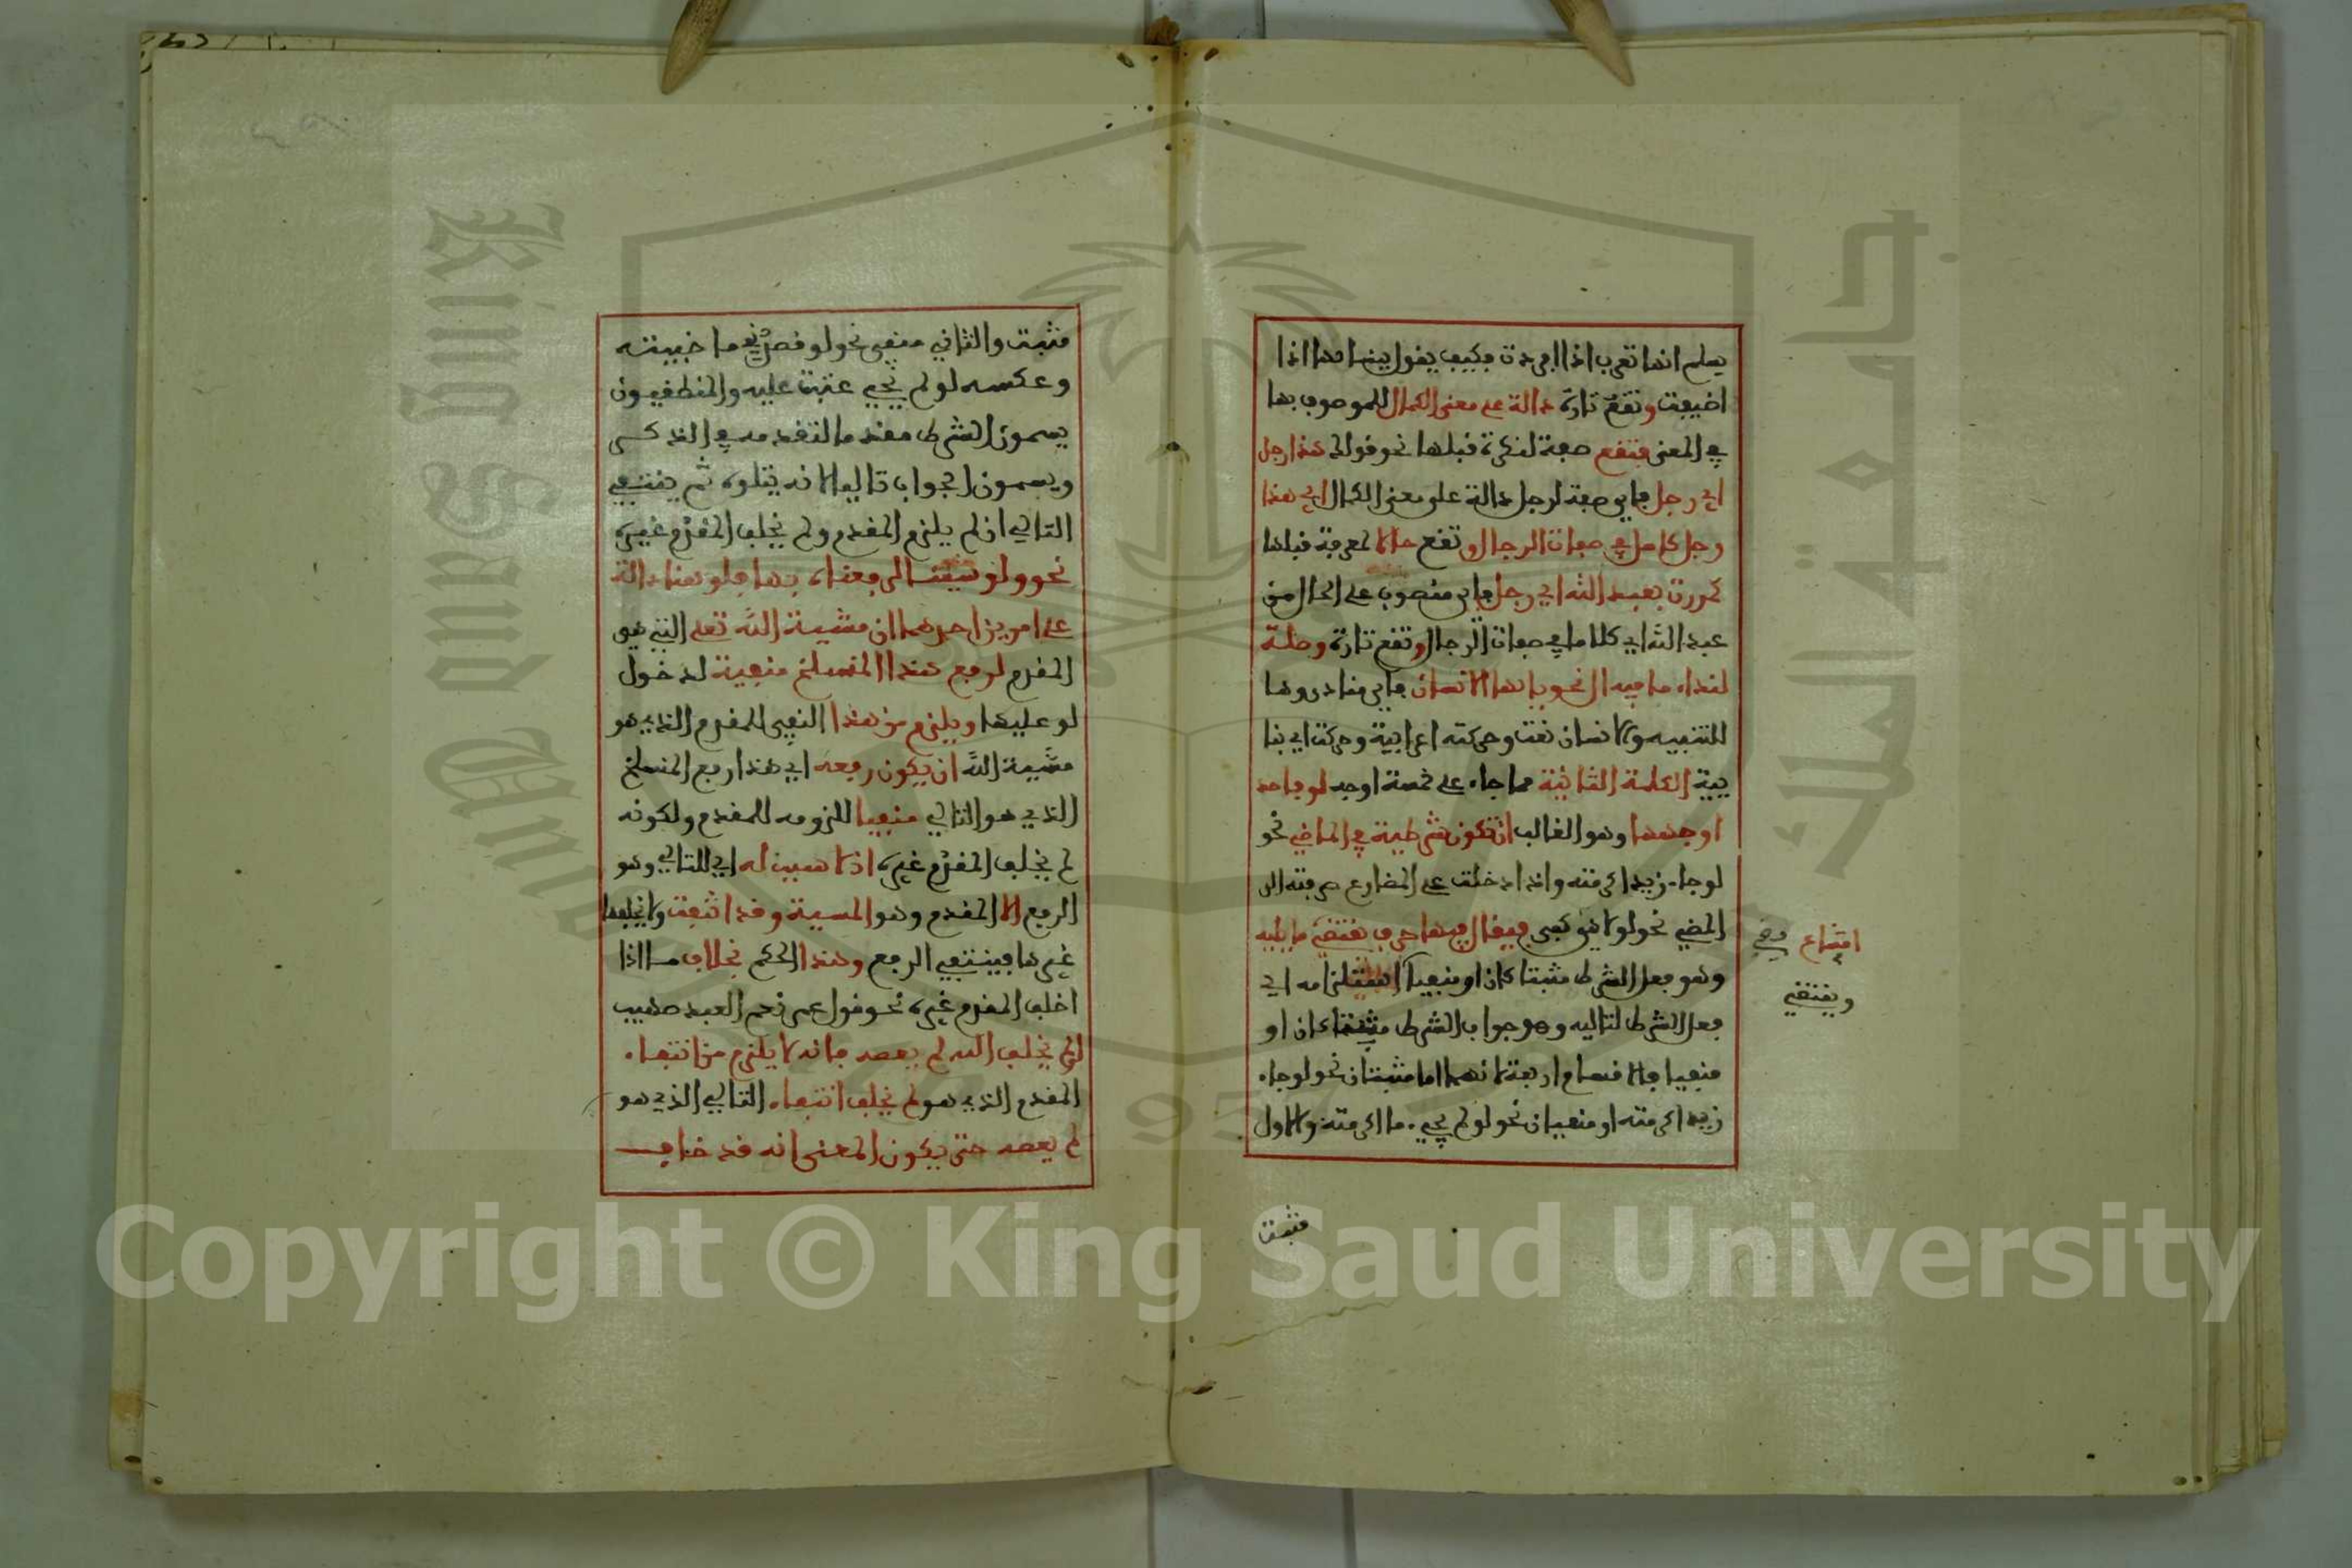 يعلم انها تعرب اذا افردت فكيف يقول ببنائها اذا
اضيفت وتقع تارة دالة على معنى الكمال للموصوف بها
في المعنى فتقع صفة لنكرة قبلها نحو قولك هذا رجل
اي رجل فاي صفة لرجل دالة على معنى الكمال اي هذا
رجل كامل في صفات الرجال وتقع حالا لمعرفة قبلها
كمررت بعبد الله اي رجل فاي منصوب على الحال من
عبد الله اي كاملا في صفات الرجال وتقع تارة وصلة
لنداء ما فيه ال نحو يا ايها الانسان فاي منادى وها
للتنبيه والانسان نعت وحركته اعرابية وحركة اي بنا
يية الكلمة الثانية مما جاء على خمسة اوجه لو فاحد
اوجهها وهو الغالب ان تكون شرطية في الماضي نحو
لو جاء زيد اكرمته واذا دخلت على المضارع صرفته الى
المضي نحو لو يفي كفى فيقال فيها حرف يقتضي ما يليه
وهو فعل الشرط مثبتا كان او منفيا استلزامه اي
فعل الشرط لتاليه وهو جواب الشرط مثبتا كان او
منفيا فالاقسام اربعة لانهما اما مثبتان نحو لو جاء
زيد اكرمته او منفيان نحو لو لم يجيء ما اكرمته والاول
امتناع في
ويقتضي
مثبت
مثبت والثاني منفي نحو لو قصدني ما خيبته
وعكسه لو لم يجيء عتبت عليه والمنطقيون
يسمون الشرط مقدما لتقدمه في الذكر
ويسمون الجواب تاليا لانه يتلوه ثم ينتفي
التالي ان لم يلزم المقدم ولم يخلف المقدم غيره
نحو ولو شئنا لرفعناه بها فلو هنا دالة
على امرين احدهما ان مشيية الله تعلى التي هي
المقدم لرفع هذا المنسلخ منفية لدخول
لو عليها ويلزم من هذا النفي للمقدم الذي هو
مشيية الله ان يكون رفعه اي هذا رفع المنسلخ
الذي هو التالي منفيا للزومه للمقدم ولكونه
لم يخلف المقدم غيره اذ لا سبب له اي للتالي وهو
الرفع الا المقدم وهو المسيية وقد انتفت ولا يخلفها
غيرها فينتفي الرفع وهذا الحكم بخلاف ما اذا
اخلف المقدم غيره نحو قول عمر نعم العبد صهيب
لو لم يخف الله لم يعصه فانه لا يلزم من انتفاء
المقدم الذي هو لم يخف انتفاء التالي الذي هو
لم يعصه حتى يكون المعنى انه قد خاف
Copyright © King Saud University